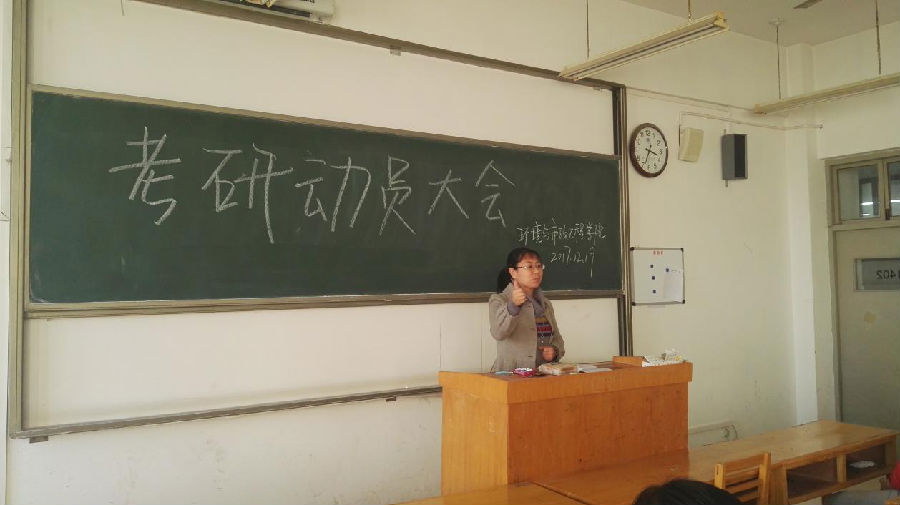 考研动员大会
环境与市政工程学院
2017.12.17
1402